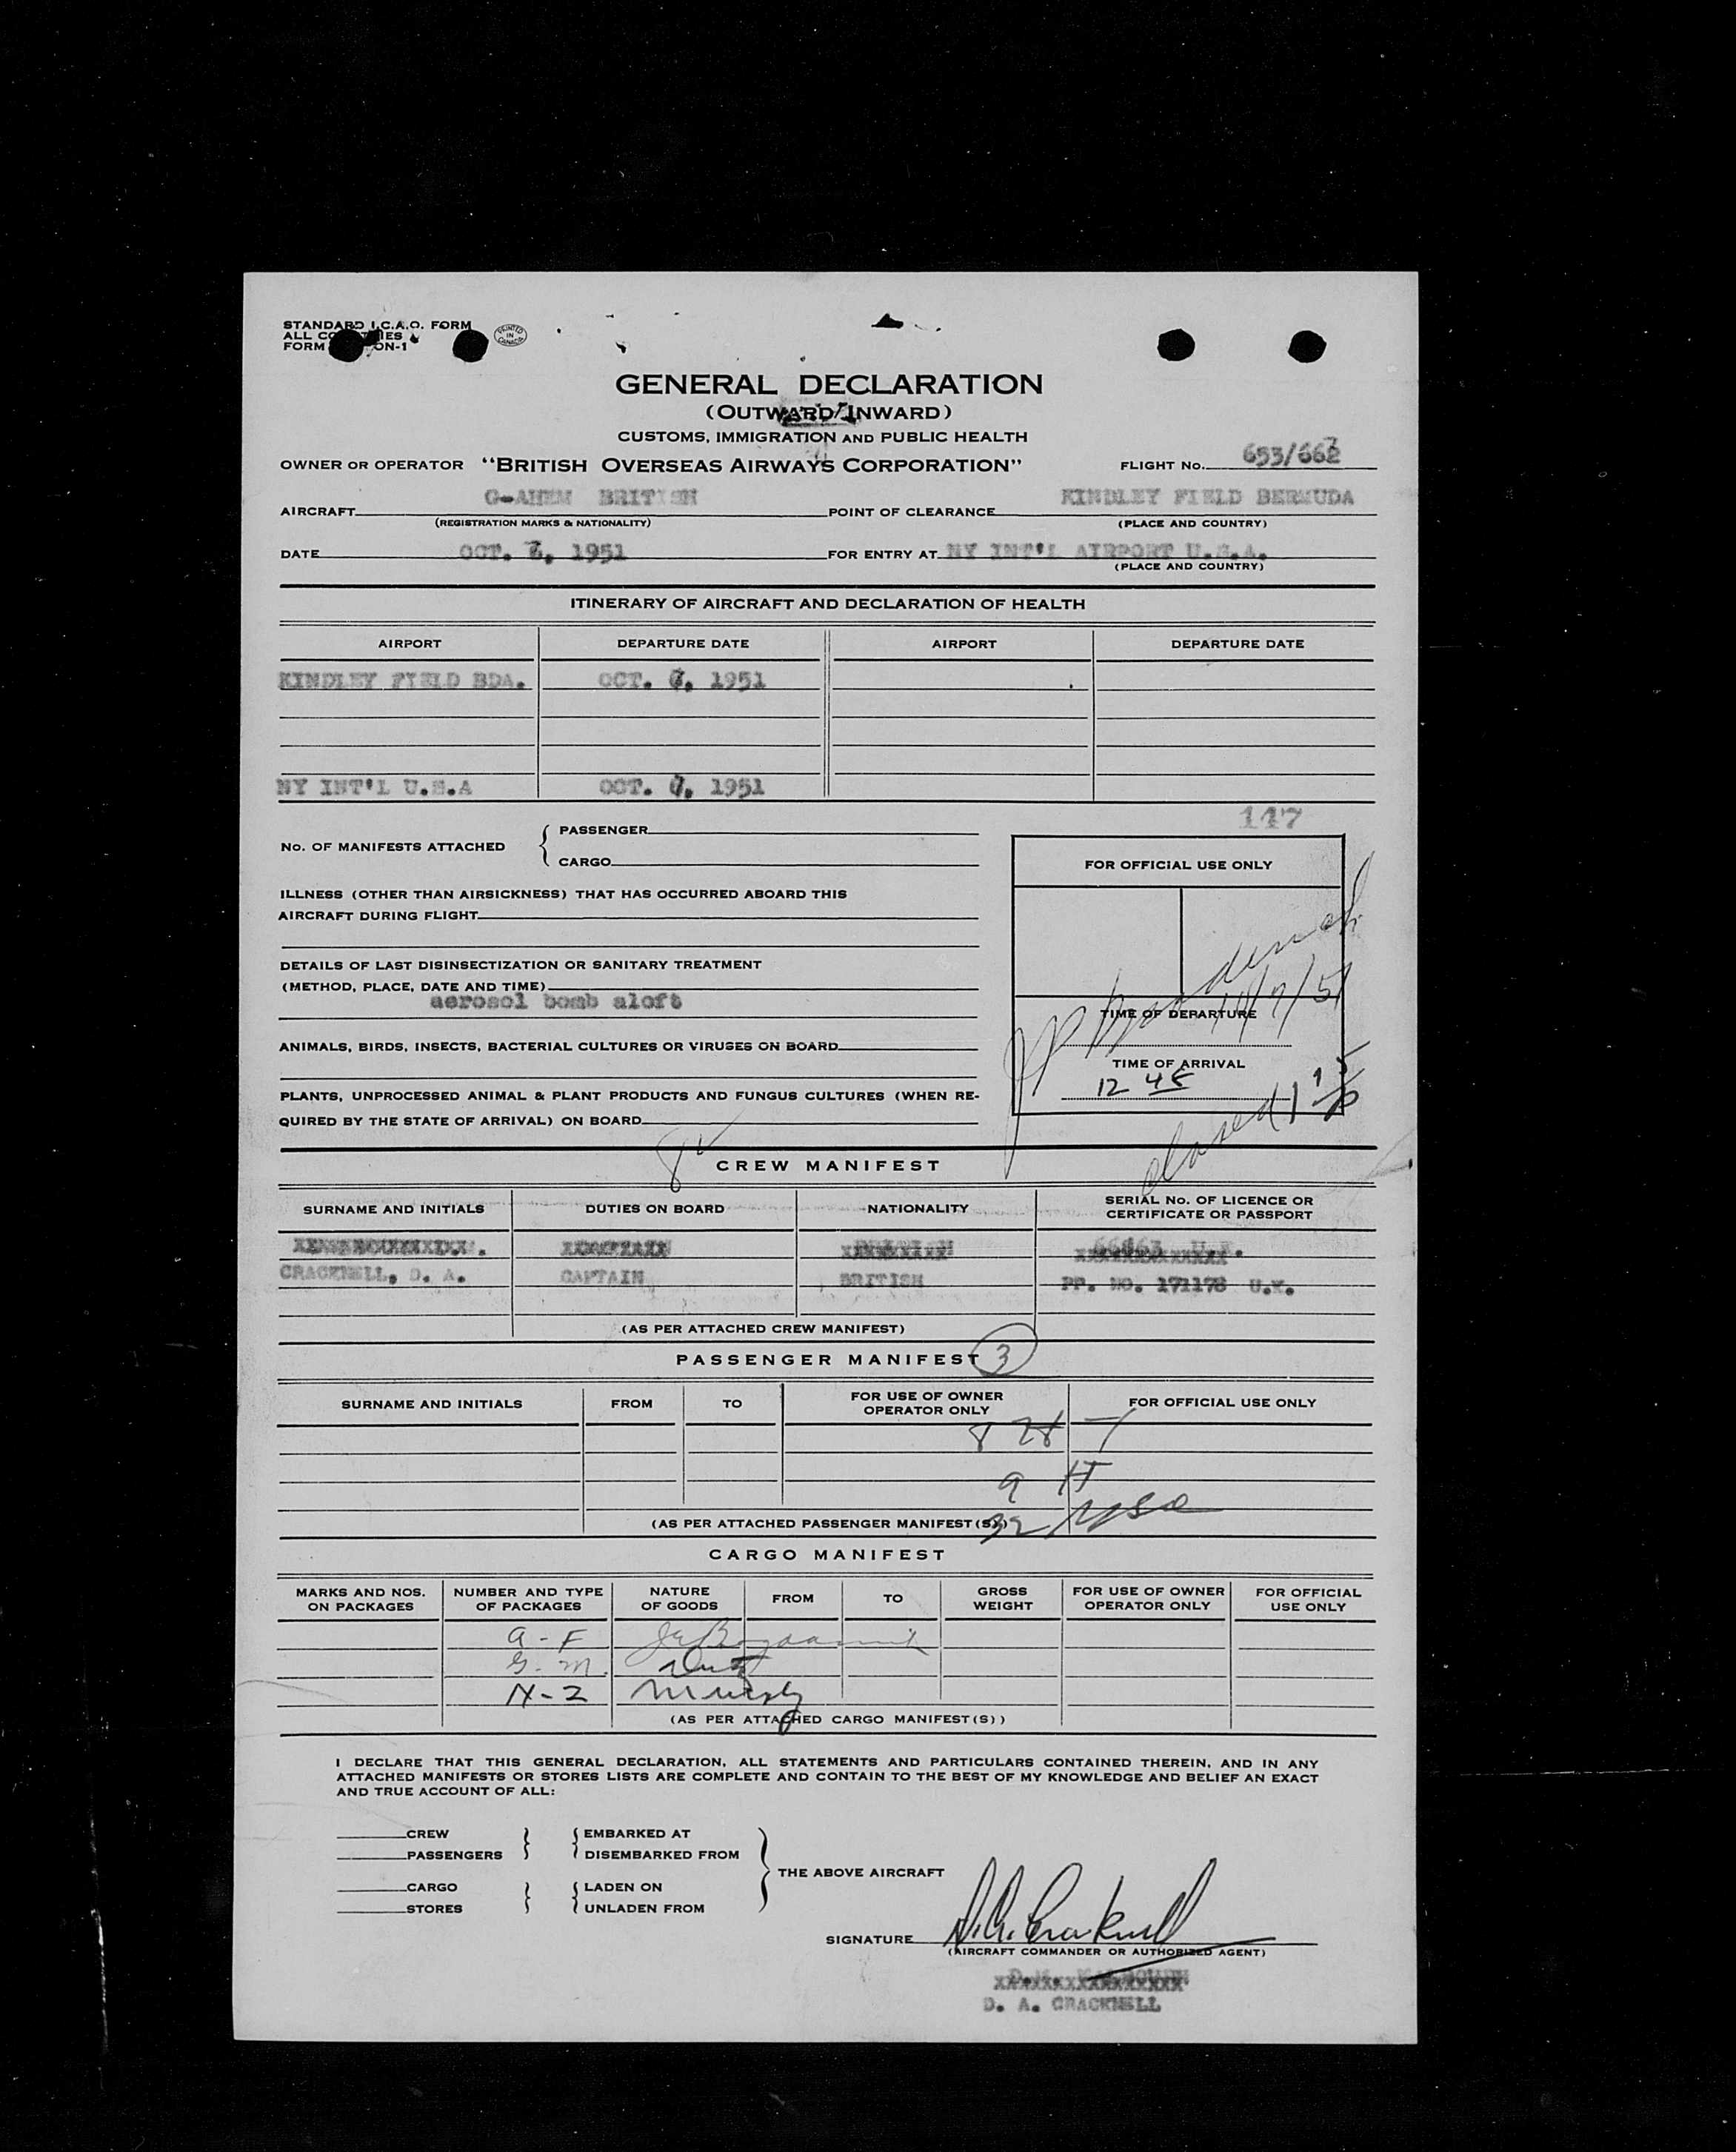 STANDARD I.C.A.O. FORM
ALL
FORM ON-1
PRINTED IN CANADA
GENERAL DECLARATION
(OUTWARD/INWARD)
CUSTOMS, IMMIGRATION AND PUBLIC HEALTH
OWNER OR OPERATOR "BRITISH OVERSEAS AIRWAYS CORPORATION" FLIGHT No. 653/662
AIRCRAFT G-AHEM BRITISH POINT OF CLEARANCE KINDLEY FIELD BERMUDA
(REGISTRATION MARKS & NATIONALITY) (PLACE AND COUNTRY)
DATE OCT. 7, 1951 FOR ENTRY AT NY INT'L AIRPORT U.S.A.
(PLACE AND COUNTRY)
ITINERARY OF AIRCRAFT AND DECLARATION OF HEALTH
AIRPORT DEPARTURE DATE AIRPORT DEPARTURE DATE
KINDLEY FIELD BDA. OCT. 7, 1951
NY INT'L U.S.A OCT. 7, 1951
117
No. OF MANIFESTS ATTACHED { PASSENGER
CARGO
FOR OFFICIAL USE ONLY
ILLNESS (OTHER THAN AIRSICKNESS) THAT HAS OCCURRED ABOARD THIS
AIRCRAFT DURING FLIGHT
DETAILS OF LAST DISINSECTIZATION OR SANITARY TREATMENT
(METHOD, PLACE, DATE AND TIME)
aerosol bomb aloft
10/7/51
TIME OF DEPARTURE
ANIMALS, BIRDS, INSECTS, BACTERIAL CULTURES OR VIRUSES ON BOARD
TIME OF ARRIVAL
12 48
PLANTS, UNPROCESSED ANIMAL & PLANT PRODUCTS AND FUNGUS CULTURES (WHEN RE-
QUIRED BY THE STATE OF ARRIVAL) ON BOARD
closed
CREW MANIFEST
SURNAME AND INITIALS DUTIES ON BOARD NATIONALITY SERIAL No. OF LICENCE OR
CERTIFICATE OR PASSPORT
CRACKNELL, D. A. CAPTAIN BRITISH PP. NO. 171178 U.K.
(AS PER ATTACHED CREW MANIFEST)
PASSENGER MANIFEST 3
SURNAME AND INITIALS FROM TO FOR USE OF OWNER
OPERATOR ONLY FOR OFFICIAL USE ONLY
9
32 USC
(AS PER ATTACHED PASSENGER MANIFEST(S))
CARGO MANIFEST
MARKS AND NOS.
ON PACKAGES NUMBER AND TYPE
OF PACKAGES NATURE
OF GOODS FROM TO GROSS
WEIGHT FOR USE OF OWNER
OPERATOR ONLY FOR OFFICIAL
USE ONLY
A - F
G - M
N - Z Murphy
(AS PER ATTACHED CARGO MANIFEST(S))
I DECLARE THAT THIS GENERAL DECLARATION, ALL STATEMENTS AND PARTICULARS CONTAINED THEREIN, AND IN ANY
ATTACHED MANIFESTS OR STORES LISTS ARE COMPLETE AND CONTAIN TO THE BEST OF MY KNOWLEDGE AND BELIEF AN EXACT
AND TRUE ACCOUNT OF ALL:
CREW EMBARKED AT
PASSENGERS DISEMBARKED FROM
THE ABOVE AIRCRAFT
CARGO LADEN ON
STORES UNLADEN FROM
SIGNATURE D.A. Cracknell
(AIRCRAFT COMMANDER OR AUTHORIZED AGENT)
D. A. CRACKNELL